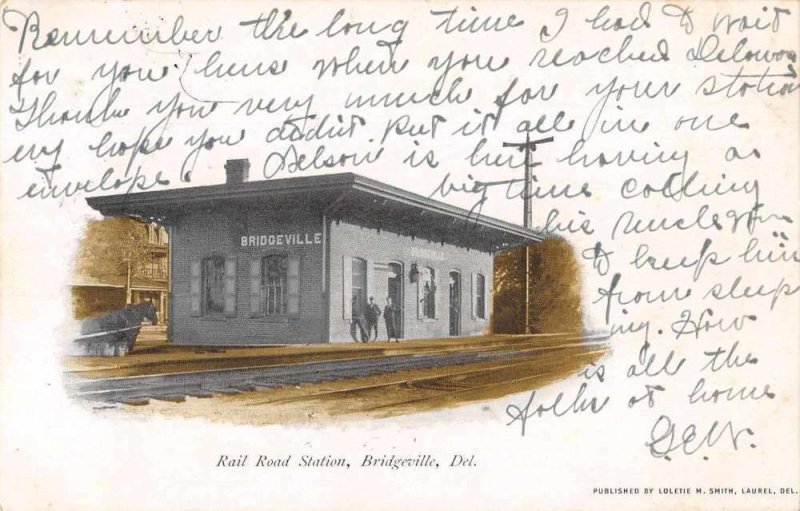 Remember the long time I had to wait
for you hens when you reached Delawar
Thank you very much for your station
ery hope you didn't put it all in one
envelope. Nelson is her having a
big time calling
his uncle
to keep him
from sleep
ing. How
is all the
folks at home
G.E.W.
BRIDGEVILLE
BRIDGEVILLE
Rail Road Station, Bridgeville, Del.
PUBLISHED BY LOLETIE M. SMITH, LAUREL, DEL.